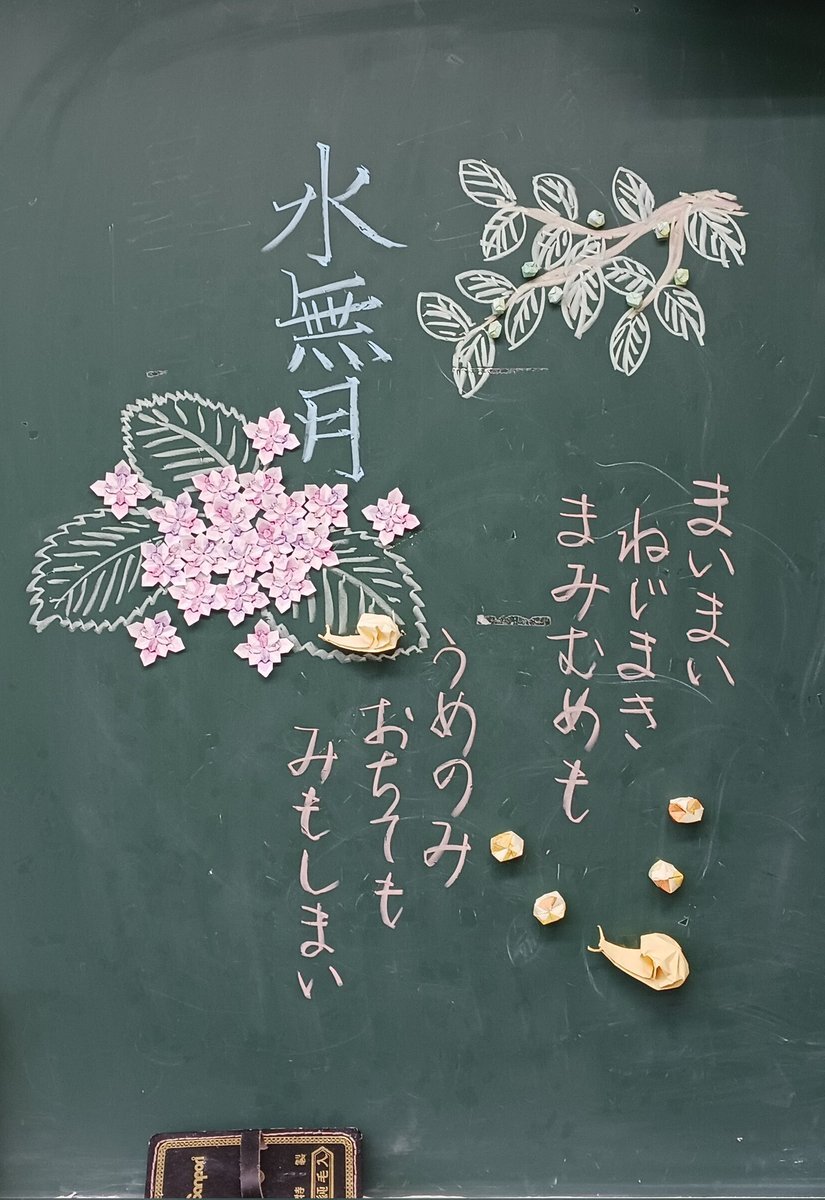 水無月
まいまい
ねじまき
まみむめも
うめのみ
おちても
みもしまい
Sanpori
特製
純毛入